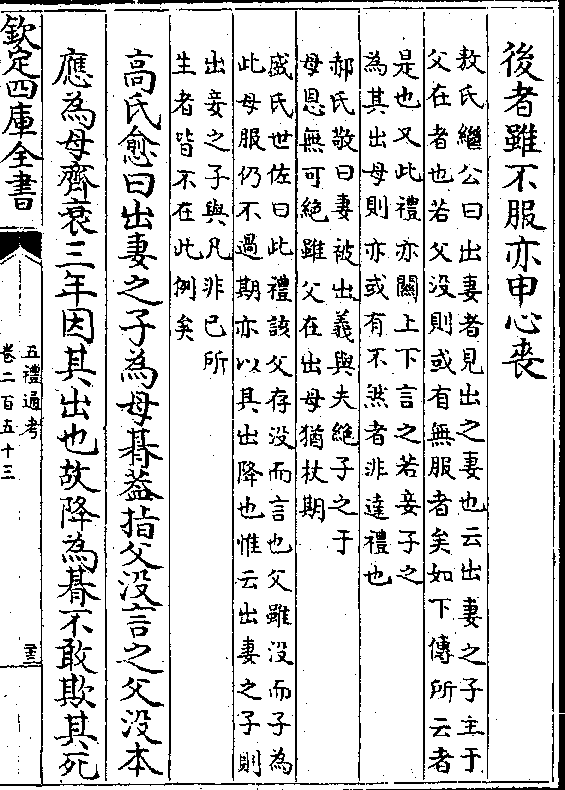 後者雖不服亦申心喪
敖氏繼公曰出妻者見出之妻也云出妻之子主于
父在者也若父沒則或有無服者矣如下傳所云者
是也又此禮亦關上下言之若妾子之
為其出母則亦或有不然者非達禮也
郝氏敬曰妻被出義與夫絶子之于
母恩無可絶雖父在出母猶杖期
盛氏世佐曰此禮該父存沒而言也父雖沒而子為
此母服仍不過期亦以其出降也惟云出妻之子則
出妾之子與凡非己所
生者皆不在此例矣
高氏愈曰出妻之子為母朞葢指父沒言之父沒本
應為母齊衰三年因其出也故降為朞不敢欺其死
欽定四庫全書
五禮通考
卷二百五十三